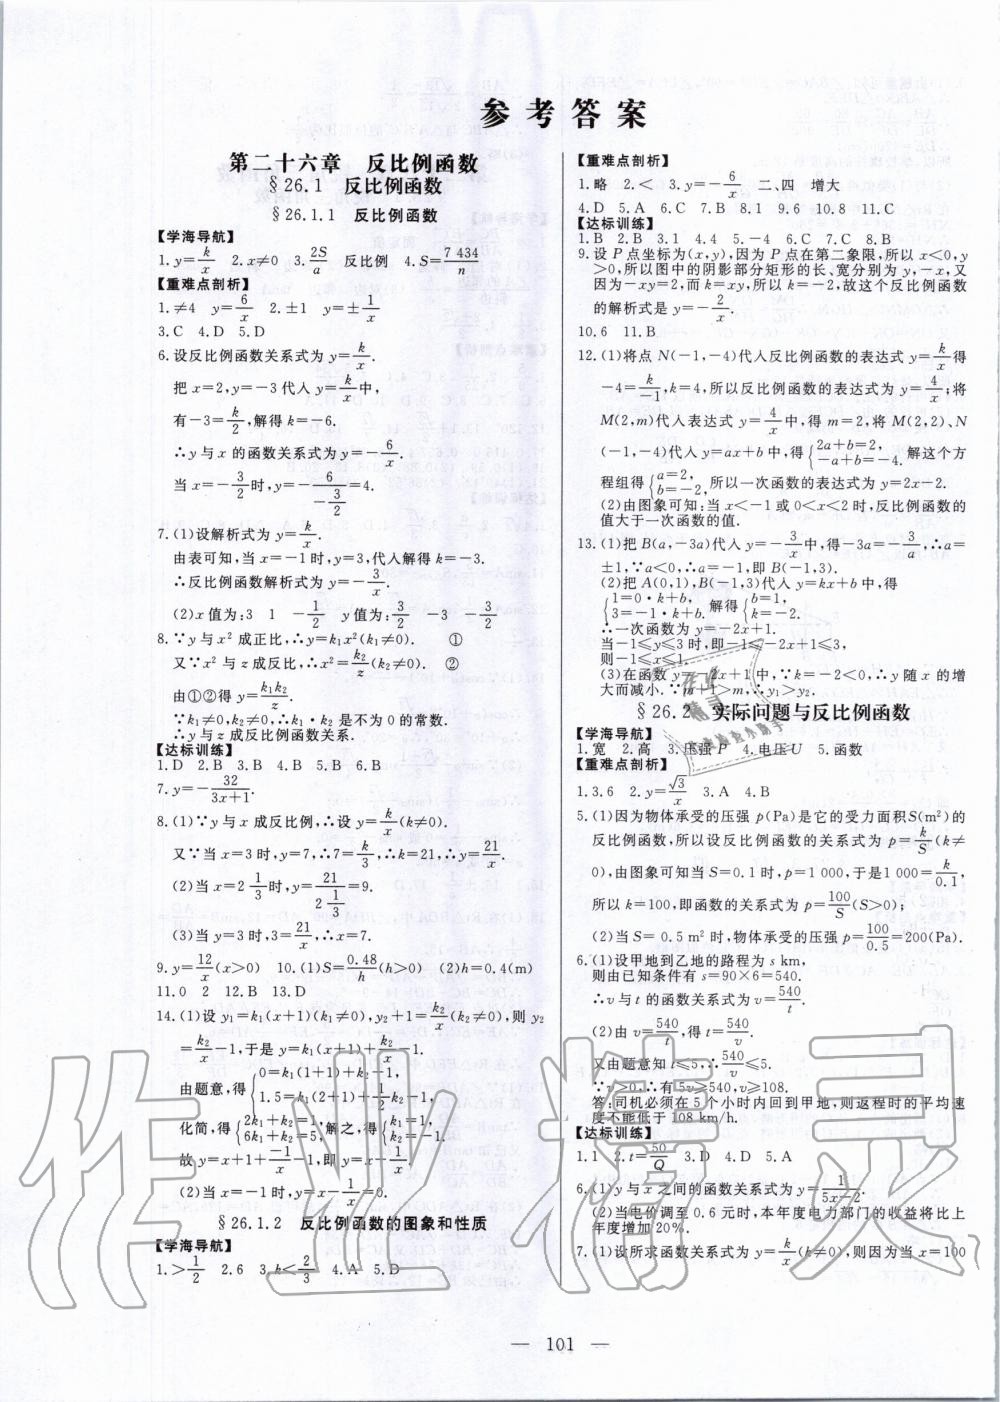 参考答案
第二十六章 反比例函数
§26.1 反比例函数
§26.1.1 反比例函数
【学海导航】
1.y=k/x 2.x≠0 3.2S/a 反比例 4.S=7 434/n
【重难点剖析】
1.≠4 y=6/x 2.±1 y=±1/x
3.C 4.D 5.D
6.设反比例函数关系式为 y=k/x.
把 x=2,y=-3代入 y=k/x中,
有-3=k/2,解得k=-6.
∴y与x的函数关系式为y=-6/x.
当x=-3/2时,y=-6/(-3/2)=4.
7.(1)设解析式为 y=k/x.
由表可知,当 x=-1时,y=3,代入解得k=-3.
∴反比例函数解析式为y=-3/x.
(2)x值为:3 1 -1/2 y值为:3/2 -3 -3/2
8.∵y与x²成正比,∴y=k₁x²(k₁≠0). ①
又∵x²与z成反比,∴x²=k₂/z(k₂≠0). ②
由①②得y=k₁k₂/z.
∵k₁≠0,k₂≠0,∴k₁·k₂是不为0的常数.
∴y与z成反比例函数关系.
【达标训练】
1.D 2.B 3.B 4.B 5.B 6.B
7.y=-32/(3x+1).
8.(1)∵y与x成反比例,∴设y=k/x(k≠0).
又∵当x=3时,y=7,∴7=k/3,∴k=21,∴y=21/x.
(2)当x=2 1/3时,y=21/(2 1/3)=9.
(3)当y=3时,3=21/x,∴x=7.
9.y=12/x(x>0) 10.(1)S=0.48/h(h>0) (2)h=0.4(m)
11.0 2 12.B 13.D
14.(1)设y₁=k₁(x+1)(k₁≠0),y₂+1=k₂/x(k₂≠0),则y₂
=k₂/x-1,于是y=k₁(x+1)+k₂/x-1.
由题意,得{0=k₁(1+1)+k₂/1-1, 1.5=k₁(2+1)+k₂/2-1,
化简,得{2k₁+k₂=1, 6k₁+k₂=5.解之,得{k₁=1, k₂=-1.
故y=x+1+-1/x-1,即y=x-1/x.
(2)当x=-1时,y=x-1/x=0.
§26.1.2 反比例函数的图象和性质
【学海导航】
1.>1/2 2.6 3.k<2/3 4.A 5.D
【重难点剖析】
1.略 2.< 3.y=-6/x 二、四 增大
4.D 5.A 6.C 7.B 8.1 9.6 10.8 11.C
【达标训练】
1.B 2.B 3.1 4.4 5.-4 6.C 7.C 8.B
9.设P点坐标为(x,y),因为P点在第二象限,所以x<0,y
>0,所以图中的阴影部分矩形的长、宽分别为y,-x,又
因为-xy=2,而k=xy,所以k=-2,故这个反比例函数
的解析式是y=-2/x.
10.6 11.B
12.(1)将点N(-1,-4)代入反比例函数的表达式y=k/x得
-4=k/-1,k=4,所以反比例函数的表达式为y=4/x;将
M(2,m)代入表达式y=4/x中,得m=2,将M(2,2)、N
(-1,-4)代入y=ax+b中,得{2a+b=2, -a+b=-4.解这个方
程组得{a=2, b=-2,所以一次函数的表达式为y=2x-2.
(2)由图象可知:当x<-1或0<x<2时,反比例函数的
值大于一次函数的值.
13.(1)把B(a,-3a)代入y=-3/x中,得-3a=-3/a,∴a=
±1,∵a<0,∴a=-1,即B(-1,3).
(2)把A(0,1),B(-1,3)代入y=kx+b中,得
{1=0·k+b, 3=-1·k+b. 解得{b=1, k=-2.
∴一次函数为y=-2x+1.
当-1≤y≤3时,即-1≤-2x+1≤3,
则-1≤x≤1.
(3)在函数y=-2x+1中,∵k=-2<0,∴y随x的增
大而减小.∵m+1>m,∴y₁>y₂.
§26.2 实际问题与反比例函数
【学海导航】
1.宽 2.高 3.压强P 4.电压U 5.函数
【重难点剖析】
1.3.6 2.y=√3/x 3.A 4.B
5.(1)因为物体承受的压强p(Pa)是它的受力面积S(m²)的
反比例函数,所以设反比例函数的关系式为p=k/S(k≠
0),由图象可知当S=0.1时,p=1 000,于是1 000=k/0.1,
所以k=100,即函数的关系式为p=100/S(S>0);
(2)当S=0.5 m²时,物体承受的压强p=100/0.5=200(Pa).
6.(1)设甲地到乙地的路程为s km,
则由已知条件有s=90×6=540.
∴v与t的函数关系式为v=540/t.
(2)由v=540/t,得t=540/v.
又由题意知t≤5,∴540/v≤5.
∵v>0,∴有5v≥540,v≥108.
答:司机必须在5个小时内回到甲地,则返程时的平均速
度不能低于108 km/h.
【达标训练】
1.1 2.t=50/Q 3.D 4.D 5.A
6.(1)y与x之间的函数关系式为y=1/(5x-2).
(2)当电价调至0.6元时,本年度电力部门的收益将比上
年度增加20%.
7.(1)设所求函数关系式为y=k/x(k≠0),则因为当x=100
— 101 —
作业精灵